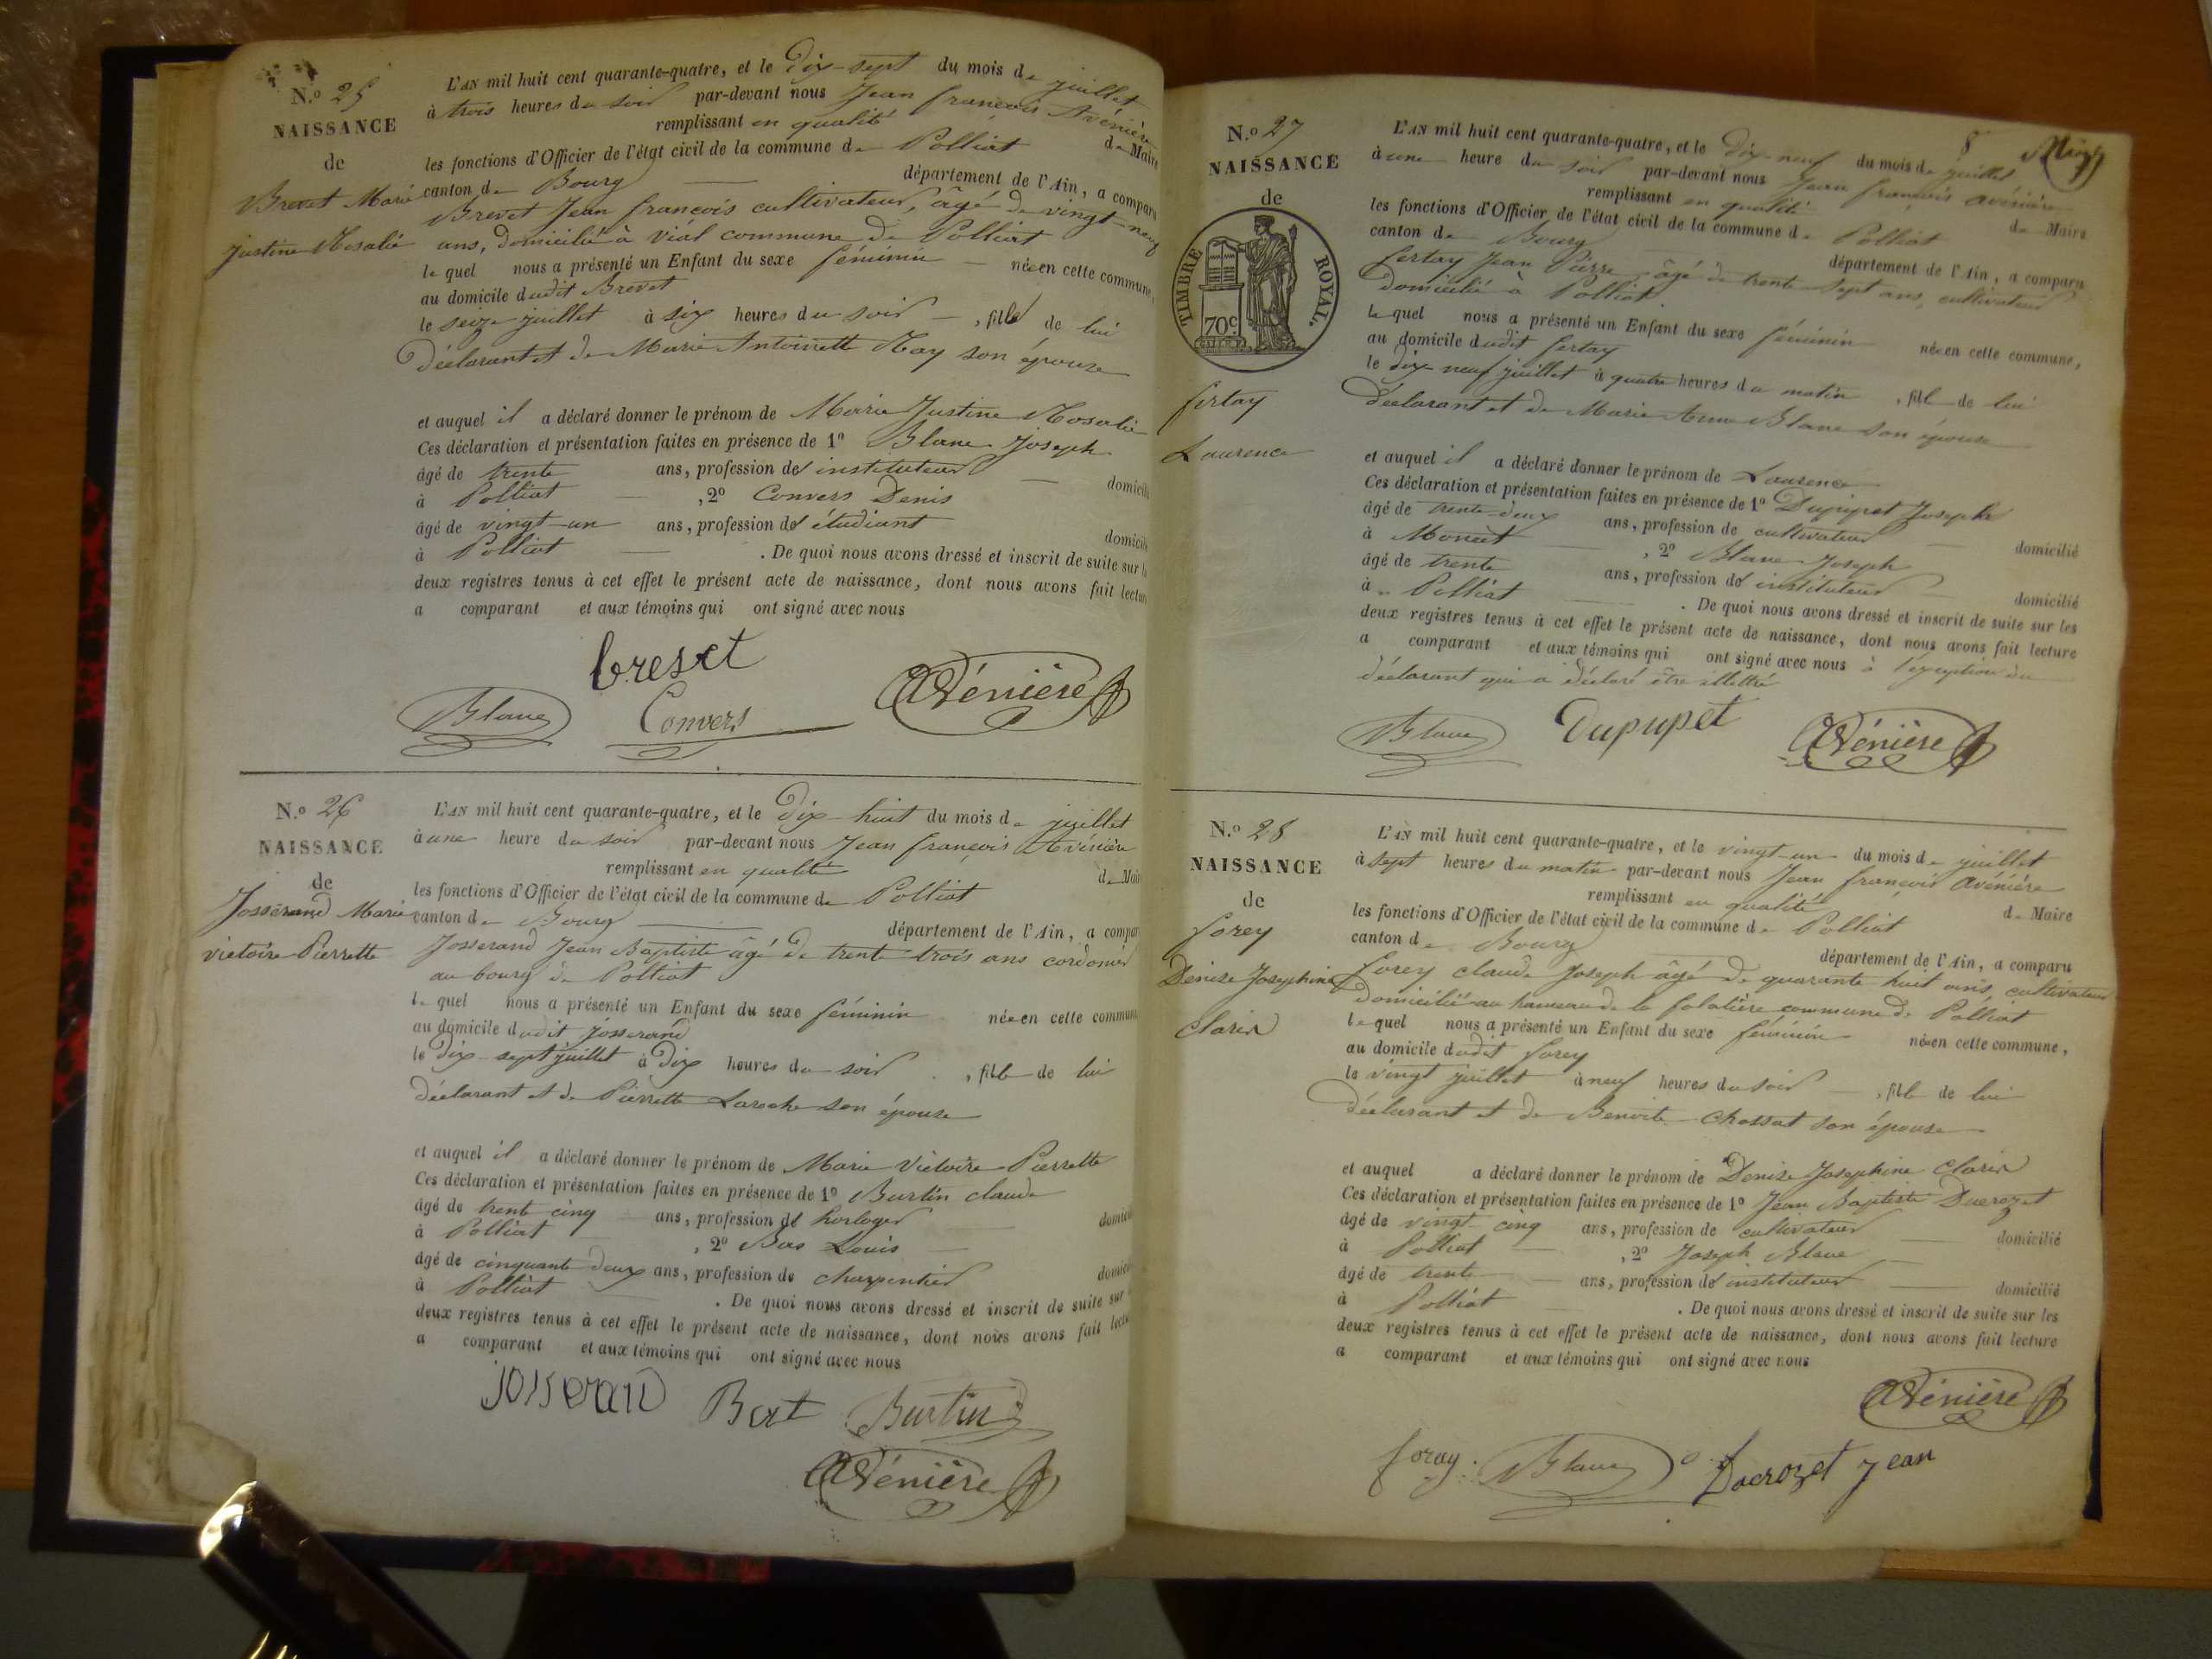 N.o 25
NAISSANCE
de
Brevet Marie
justine Rosalie
L'AN mil huit cent quarante-quatre, et le dix-sept du mois de juillet
à trois heures du soir par-devant nous Jean françois Avénière
remplissant en qualité de Maire
les fonctions d'Officier de l'état civil de la commune de Polliat
canton de Bourg département de l'Ain, a comparu
Brevet Jean françois cultivateur, âgé de vingt-neuf
ans, domicilié à Vial commune de Polliat
lequel nous a présenté un Enfant du sexe féminin née en cette commune,
au domicile dudit Brevet
le seize juillet à six heures du soir, fille de lui
déclarant et de Marie Antoinette Ray son épouse
et auquel il a déclaré donner le prénom de Marie Justine Rosalie
Ces déclaration et présentation faites en présence de 1o Blanc Joseph
âgé de trente ans, profession d'instituteur domicilié
à Polliat, 2o Convers Denis
âgé de vingt-un ans, profession d'étudiant domicilié
à Polliat. De quoi nous avons dressé et inscrit de suite sur les
deux registres tenus à cet effet le présent acte de naissance, dont nous avons fait lecture
a comparant et aux témoins qui ont signé avec nous
brevet
Blanc Convers Avénière
N.o 26
NAISSANCE
de
Josserand Marie
victoire Pierrette
L'AN mil huit cent quarante-quatre, et le dix-huit du mois de juillet
à une heure du soir par-devant nous Jean françois Avénière
remplissant en qualité de Maire
les fonctions d'Officier de l'état civil de la commune de Polliat
canton de Bourg département de l'Ain, a comparu
Josserand Jean Baptiste âgé de trente trois ans cordonier
au bourg de Polliat
lequel nous a présenté un Enfant du sexe féminin née en cette commune
au domicile dudit josserand
le dix-sept juillet à dix heures du soir, fille de lui
déclarant et de Pierrette Laroche son épouse
et auquel il a déclaré donner le prénom de Marie Victoire Pierrette
Ces déclaration et présentation faites en présence de 1o Burtin claude
âgé de trente cinq ans, profession d'horloger domicilié
à Polliat, 2o Bas Louis
âgé de cinquante deux ans, profession de charpentier domicilié
à Polliat. De quoi nous avons dressé et inscrit de suite sur
deux registres tenus à cet effet le présent acte de naissance, dont nous avons fait lecture
a comparant et aux témoins qui ont signé avec nous
josserand Burtin
Avénière
8
N.o 27
NAISSANCE
de
TIMBRE ROYAL.
70c.
fertay
Laurence
L'AN mil huit cent quarante-quatre, et le dix-neuf du mois de juillet
à une heure du soir par-devant nous Jean françois avénière
remplissant en qualité de Maire
les fonctions d'Officier de l'état civil de la commune de Polliat
canton de Bourg département de l'Ain, a comparu
fertay Jean Pierre âgé de trente sept ans, cultivateur
domicilié à Polliat
lequel nous a présenté un Enfant du sexe féminin née en cette commune,
au domicile dudit fertay
le dix neuf juillet à quatre heures du matin, fille de lui
déclarant et de Marie Anne Blanc son épouse
et auquel il a déclaré donner le prénom de Laurence
Ces déclaration et présentation faites en présence de 1o Dupupet Joseph
âgé de trente-deux ans, profession de cultivateur domicilié
à Moncet, 2o Blanc Joseph
âgé de trente ans, profession d'instituteur domicilié
à Polliat. De quoi nous avons dressé et inscrit de suite sur les
deux registres tenus à cet effet le présent acte de naissance, dont nous avons fait lecture
a comparant et aux témoins qui ont signé avec nous à l'exception du
déclarant qui a déclaré être illettré
Blanc Dupupet Avénière
N.o 28
NAISSANCE
de
forey
Denise Josephine
Clarin
L'AN mil huit cent quarante-quatre, et le vingt-un du mois de juillet
à sept heures du matin par-devant nous Jean françois avénière
remplissant en qualité de Maire
les fonctions d'Officier de l'état civil de la commune de Polliat
canton de Bourg département de l'Ain, a comparu
forey claude Joseph âgé de quarante huit ans, cultivateur
domicilié au hameau de la folatière commune de Polliat
lequel nous a présenté un Enfant du sexe féminin née en cette commune,
au domicile dudit forey
le vingt juillet à neuf heures du soir, fille de lui
déclarant et de Benoite Chossat son épouse
et auquel a déclaré donner le prénom de Denise Josephine Clarin
Ces déclaration et présentation faites en présence de 1o Jean Baptiste Ducrozet
âgé de vingt-cinq ans, profession de cultivateur domicilié
à Polliat, 2o Joseph Blanc
âgé de trente ans, profession d'instituteur domicilié
à Polliat. De quoi nous avons dressé et inscrit de suite sur les
deux registres tenus à cet effet le présent acte de naissance, dont nous avons fait lecture
a comparant et aux témoins qui ont signé avec nous
Avénière
foray. Blanc Ducrozet jean